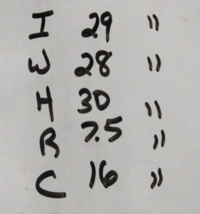 I 29 "
W 28 "
H 30 "
R 7.5 "
C 16 "